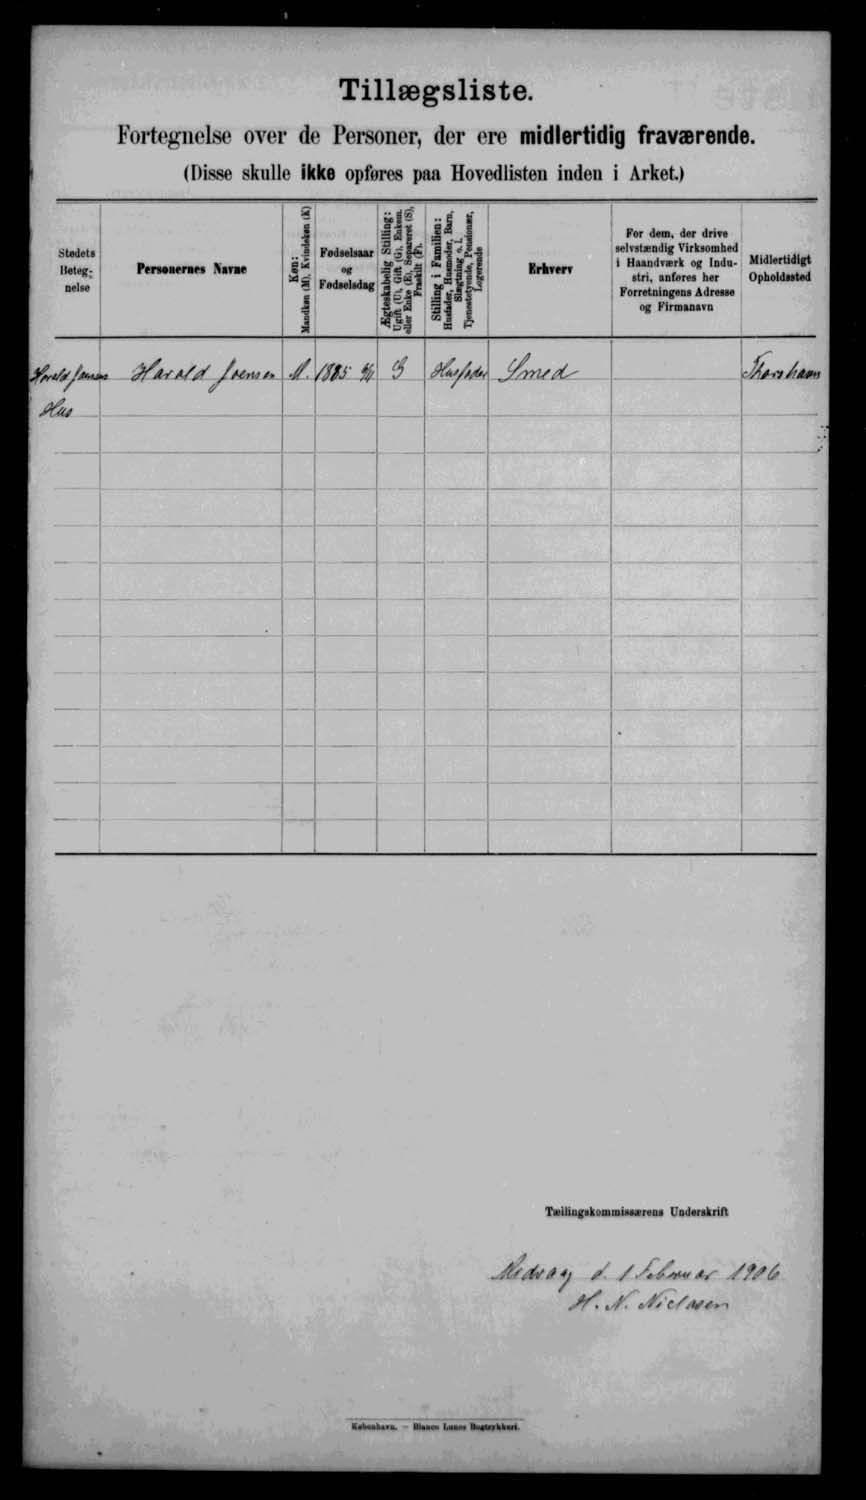 Tillægsliste.
Fortegnelse over de Personer, der ere midlertidig fraværende.
(Disse skulle ikke opføres paa Hovedlisten inden i Arket.)
Stedets
Beteg-
nelse
Personernes Navne
Køn:
Mandkøn (M), Kvindekøn (K)
Fødselsaar
og
Fødselsdag
Ægteskabelig Stilling:
Ugift (U), Gift (G), Enkem.
eller Enke (E), Separeret (S),
Fraskilt (F).
Stilling i Familien:
Husfader, Husmoder, Barn,
Slægtning o. l.
Tjenestetyende, Pensionær,
Logerende
Erhverv
For dem, der drive
selvstændig Virksomhed
i Haandværk og Indu-
stri, anføres her
Forretningens Adresse
og Firmanavn
Midlertidigt
Opholdssted
Harald Joensens Harald Joensen M. 1885 G Husfader Smed Thorshavn
Hus
Tællingskommissærens Underskrift
d. 1 Februar 1906
H. N. Niclasen
København. — Bianco Lunos Bogtrykkeri.